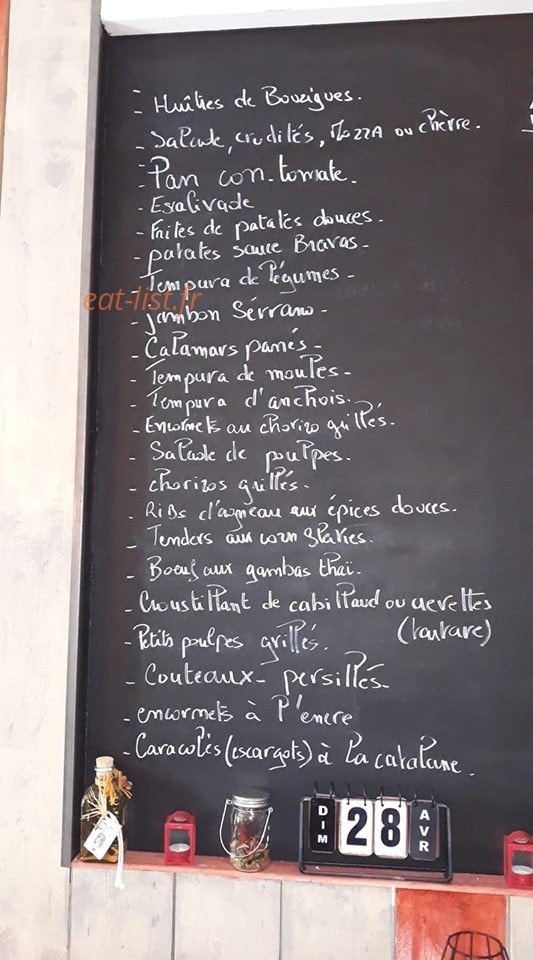 - Huîtres de Bouzigues.
- Salade, crudités, Mozza ou chèvre.
- Pan con tomate.
- Escalivade
- Frites de patates douces.
- patates sauce Bravas -
- Tempura de légumes -
eat-list.fr
- Jambon Sérrano -
- Calamars panés -
- Tempura de moules -
- Tempura d'anchois.
- Encornets au chorizo grillés.
- Salade de poulpes.
- chorizos grillés.
- Ribs d'agneau aux épices douces.
- Tenders aux corn flakes.
- Boeuf aux gambas thaï.
- Croustillant de cabillaud ou crevettes
(tartare)
- Petits poulpes grillés.
- Couteaux - persillés -
- encornets à l'encre
- Caracoles (escargots) à la catalane.
DIM 28 AVR